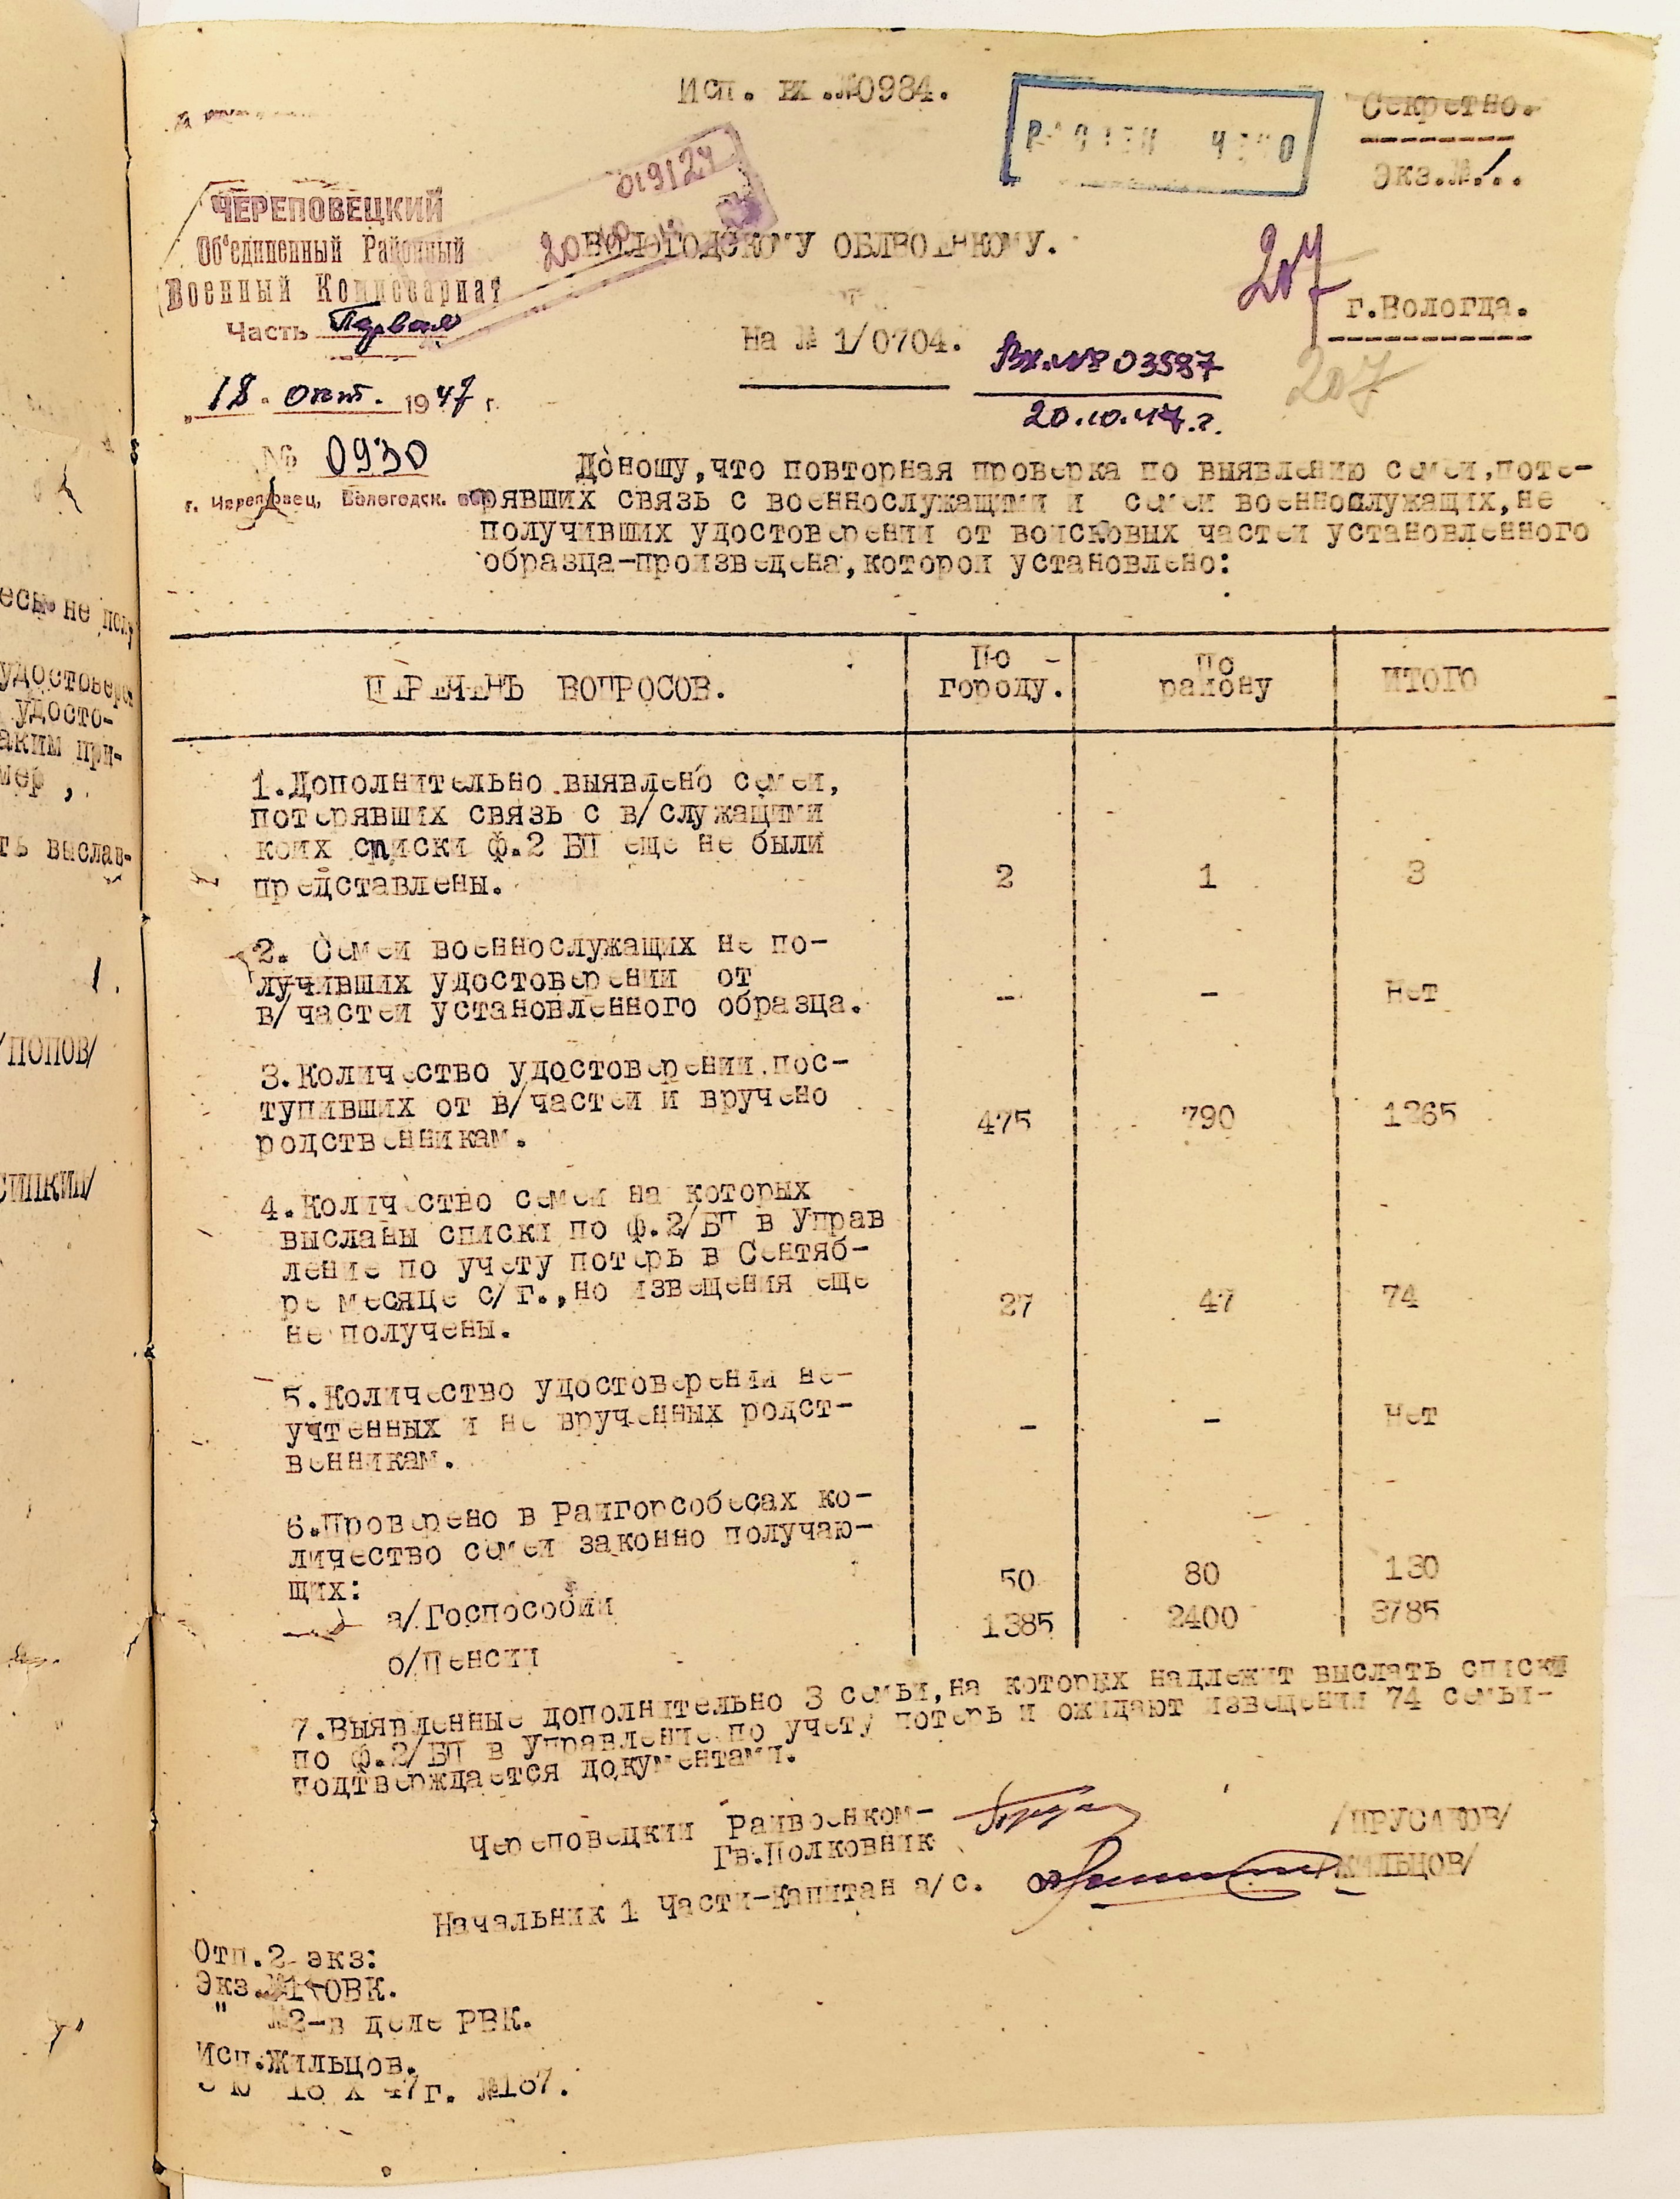 Исп. вх.№0984.
Секретно.
Экз.№...
019124
ЧЕРЕПОВЕЦКИЙ
Об'единенный Районный
Военный Комиссариат
Часть Первая
"18" окт. 1947 г.
№ 0930
г. Череповец, Вологодск. обл
20
ВОЛОГОДСКОМУ ОБЛВОЕНКОМУ.
207
г.Вологда.
207
На № 1/0704.
Вх.№ 03587
20.10.47.г.
Доношу,что повторная проверка по выявлению семей,поте-
рявших связь с военнослужащими и семей военнослужащих,не
получивших удостоверений от воисковых частей установленного
образца-произведена,которой установлено:
ПЕРЕЧЕНЬ ВОПРОСОВ.
По
городу.
По
району
ИТОГО
1.Дополнительно выявлено семей,
потерявших связь с в/служащими
коих списки ф.2 БП еще не были
представлены. 2 1 3
2. Семей военнослужащих не по-
лучивших удостоверений от
в/частей установленного образца. - - Нет
3.Количество удостоверений пос-
тупивших от в/частей и вручено
родственникам. 475 790 1265
4.Количество семей на которых
высланы списки по ф.2/БП в Управ
ление по учету потерь в Сентяб-
ре месяце с/г.,но извещения еще
не получены. 27 47 74
5.Количество удостоверений не-
учтенных и не врученных родст-
венникам. - - Нет
6.Проверено в Райгорсобесах ко-
личество семей законно получаю-
щих:
а/Госпособий 50 80 130
б/Пенсий 1385 2400 3785
7.Выявленные дополнительно 3 семьи,на которых надлежит выслать списки
по ф.2/БП в управление по учету потерь и ожидают извещений 74 семьи-
подтверждается документами.
Череповецкий Райвоенком-
Гв.Полковник /ПРУСАКОВ/
Начальник 1 Части-Капитан а/с. /ЖИЛЬЦОВ/
Отп.2 экз:
Экз.№1-ОВК.
" №2-в деле РВК.
Исп.Жильцов.
18 X 47г. №187.
есь не полу
удостовере
удосто-
аким при-
мер,
ть выслав-
1.
/ПОПОВ/